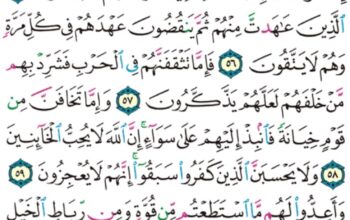 ٱلَّذِينَ عَـٰهَدتَّ مِنْهُمْ ثُمَّ يَنقُضُونَ عَهْدَهُمْ فِى كُلِّ مَرَّةٍ
وَهُمْ لَا يَتَّقُونَ ٥٦ فَإِمَّا تَثْقَفَنَّهُمْ فِى ٱلْحَرْبِ فَشَرِّدْ بِهِم
مَّنْ خَلْفَهُمْ لَعَلَّهُمْ يَذَّكَّرُونَ ٥٧ وَإِمَّا تَخَافَنَّ مِن
قَوْمٍ خِيَانَةً فَٱنۢبِذْ إِلَيْهِمْ عَلَىٰ سَوَآءٍ ۚ إِنَّ ٱللَّهَ لَا يُحِبُّ ٱلْخَآئِنِينَ
٥٨ وَلَا يَحْسَبَنَّ ٱلَّذِينَ كَفَرُوا۟ سَبَقُوٓا۟ ۚ إِنَّهُمْ لَا يُعْجِزُونَ ٥٩
وَأَعِدُّوا۟ لَهُم مَّا ٱسْتَطَعْتُم مِّن قُوَّةٍ وَمِن رِّبَاطِ ٱلْخَيْلِ